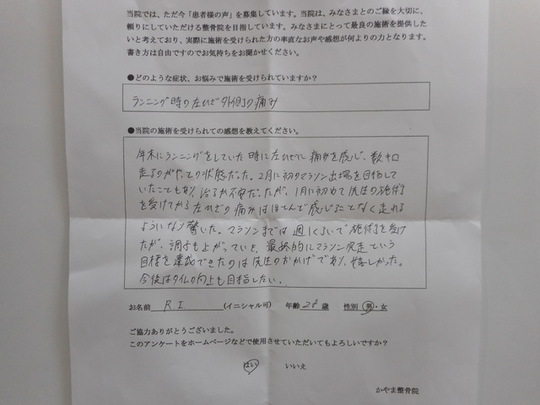 当院では、ただ今「患者様の声」を募集しています。当院は、みなさまとのご縁を大切に、
頼りにしていただける整骨院を目指しています。みなさまにとって最良の施術を提供した
いと考えており、実際に施術を受けられた方の率直なお声や感想が何よりの力となります。
書き方は自由ですのでお気持ちをお聞かせください。
●どのような症状、お悩みで施術を受けられていますか？
ランニング時の左ひざ外側の痛み
●当院の施術を受けられての感想を教えてください。
年末にランニングをしていた時に左ひざに痛みを感じ、数キロ
走るのがやっとの状態だった。2月に初のマラソン出場を目指して
いたこともあり、治るか不安だったが、1月に初めて先生の施術
を受けてから左ひざの痛みはほとんど感じることなく走れる
ようになり驚いた。マラソンまでは週1くらいで施術を受け
たが、調子も上がっていき、最終的にマラソン完走という
目標を達成できたのは先生のおかげであり、嬉しかった。
今後はタイムの向上も目指したい。
お名前 R I (イニシャル可) 年齢 28 歳 性別 男・女
ご協力ありがとうございました。
このアンケートをホームページなどで使用させていただいてもよろしいですか？
はい いいえ
かやま整骨院